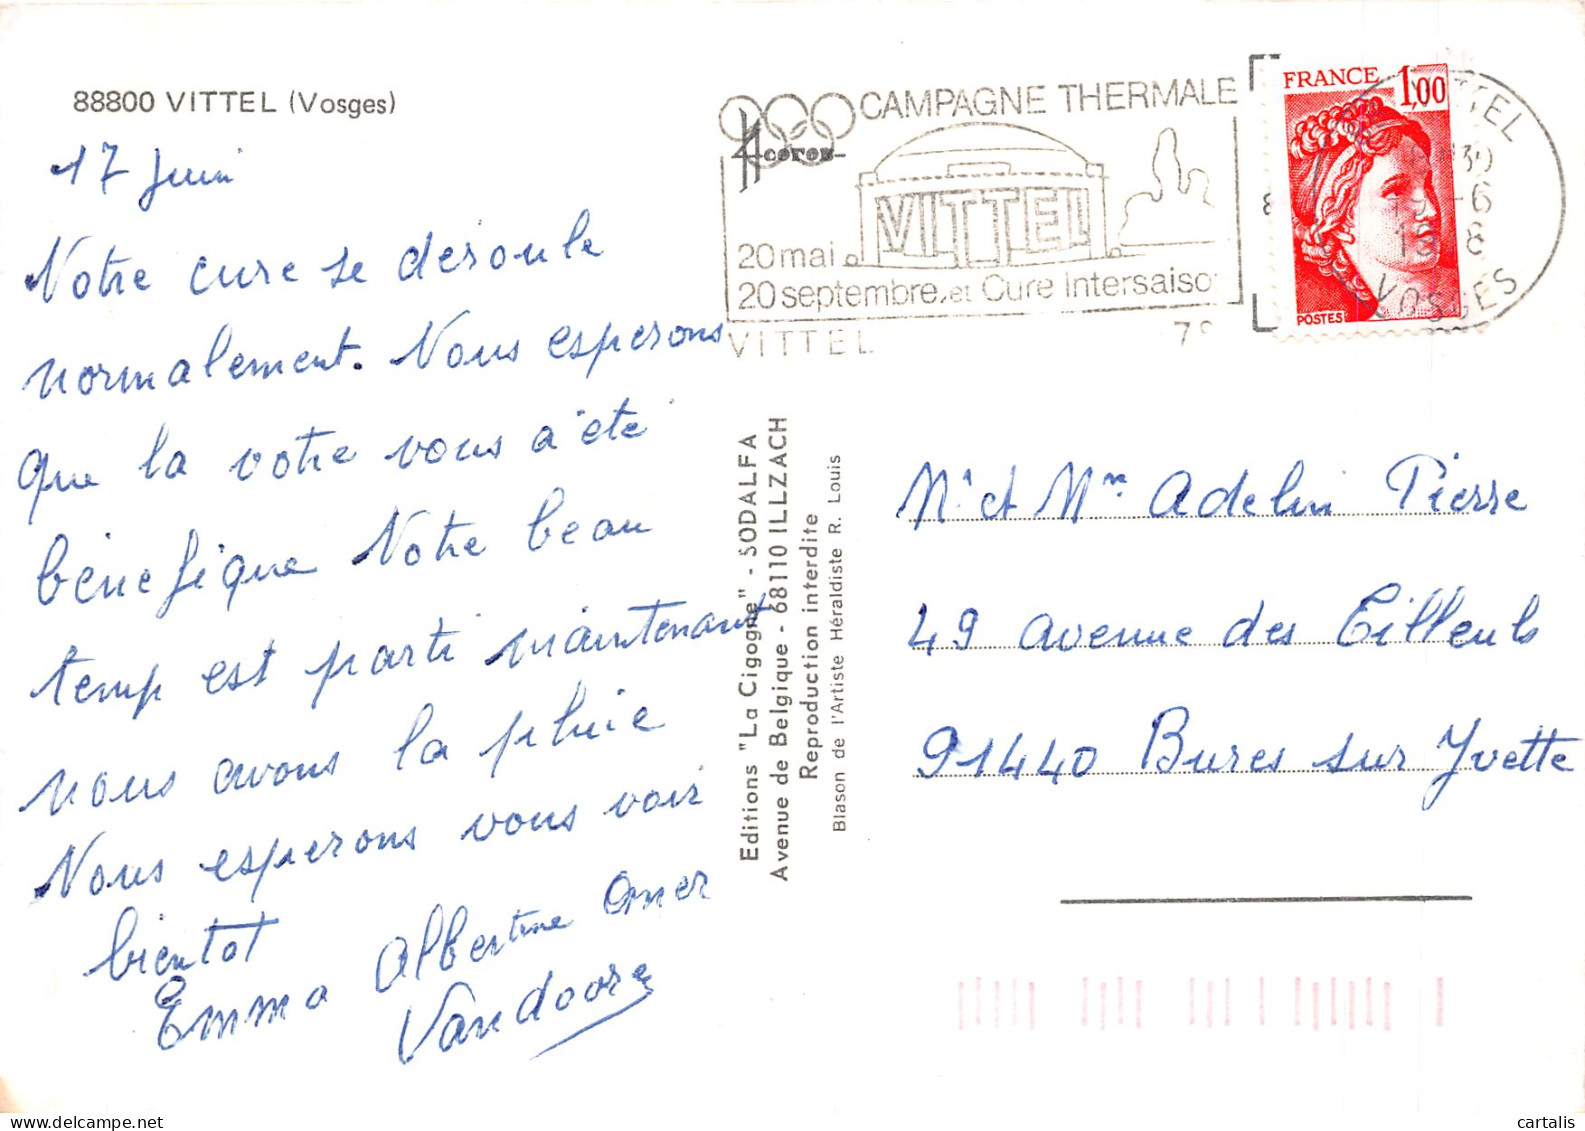 88800 VITTEL (Vosges)
17 Juin
Notre cure se deroule
normalement. Nous esperons
que la votre vous a été
bénefique Notre beau
temps est parti maintenant
nous avons la pluie
Nous esperons vous voir
bientot
Emma Albertine Omer
Vandoore
CAMPAGNE THERMALE
VITTEL
20 mai
20 septembre, et Cure Intersaiso
VITTEL
FRANCE 1,00
POSTES
VOSGES
Editions "La Cigogne" - SODALFA
Avenue de Belgique - 68110 ILLZACH
Reproduction interdite
Blason de l'Artiste Héraldiste R. Louis
Mr et Mme Adelin Pierre
49 avenue des Tilleuls
91440 Bures sur Yvette
delcampe.net
cartalis